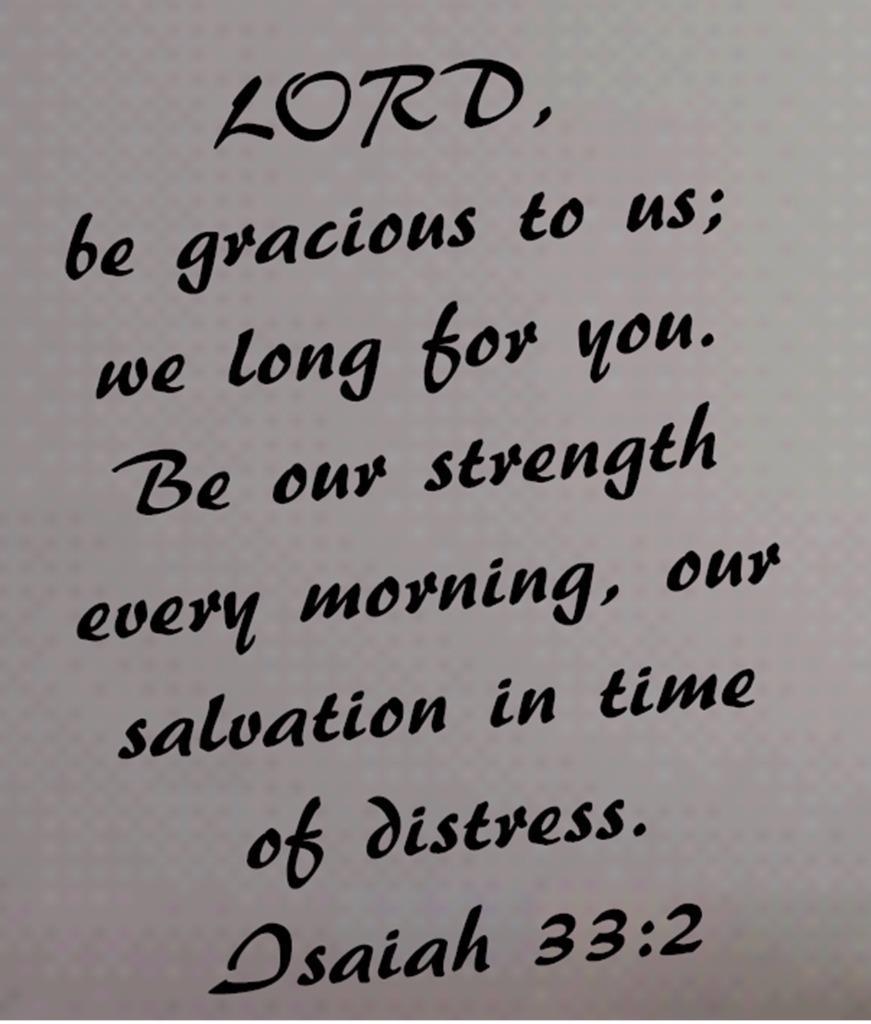 LORD,
be gracious to us;
we long for you.
Be our strength
every morning, our
salvation in time
of distress.
Isaiah 33:2